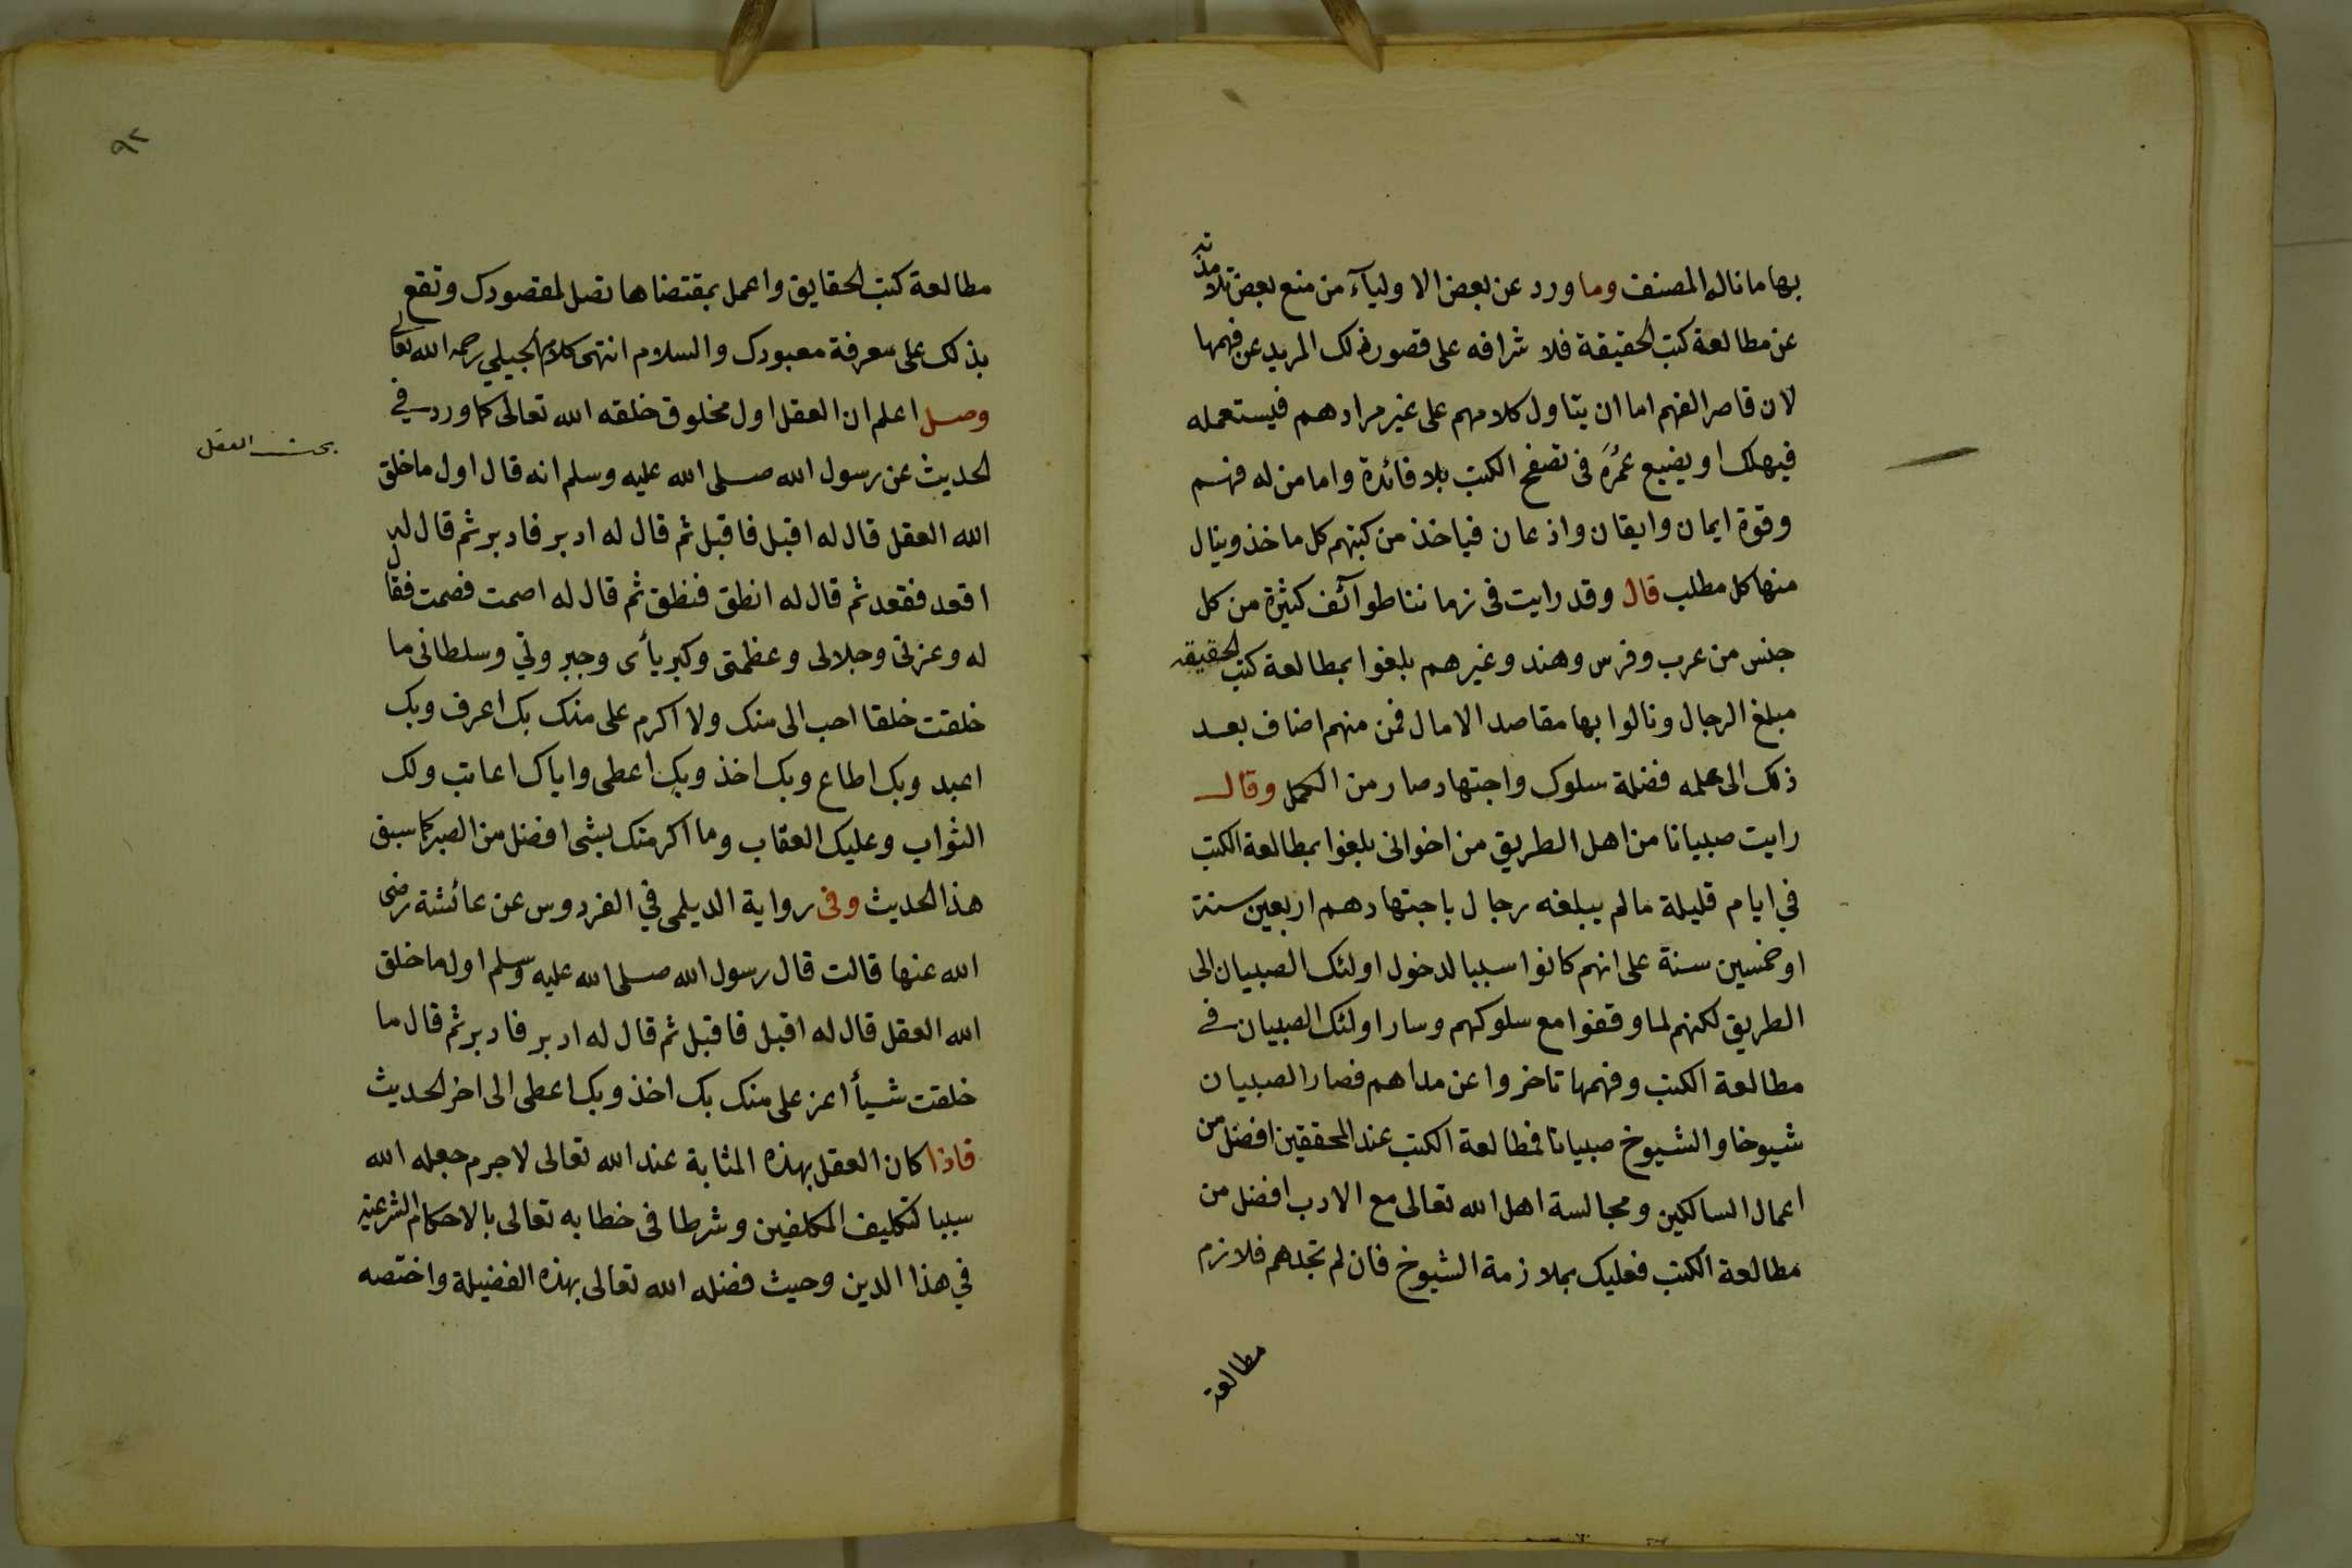 بها ما ناله المصنف وما ورد عن بعض الاوليآء من منع بعض تلامذته
عن مطالعة كتب الحقيقة فلا شرافه على قصور ذلك المريد عن فهمها
لان قاصر الفهم اما ان يتاول كلامهم على غير مرادهم فيستعمله
فيهلك او يضيع عمُرَه فى تصفح الكتب بلا فائدة واما من له فهم
وقوة ايمان وايقان واذعان فياخذ من كتبهم كل ماخذ وينال
منها كل مطلب قال وقد رايت فى زماننا طوآئف كثيرة من كل
جنس من عرب وفرس وهند وغيرهم بلغوا بمطالعة كتب الحقيقه
مبلغ الرجال ونالوا بها مقاصد الامال فمن منهم اضاف بعد
ذلك الى علمه فضلة سلوك واجتهاد صار من الكمل وقال
رايت صبيانا من اهل الطريق من اخوانى بلغوا بمطالعة الكتب
في ايام قليلة ما لم يبلغه رجال باجتهادهم اربعين سنة
او خمسين سنة على انهم كانوا سببا لدخول اولئك الصبيان الى
الطريق لكنهم لما وقفوا مع سلوكهم وسار اولئك الصبيان في
مطالعة الكتب وفهمها تاخروا عن مداهم فصار الصبيان
شيوخا والشيوخ صبيانا فمطالعة الكتب عند المحققين افضل من
اعمال السالكين ومجالسة اهل الله تعالى مع الادب افضل من
مطالعة الكتب فعليك بملازمة الشيوخ فان لم تجدهم فلازم
مطالعة
٩٢
مطالعة كتب الحقايق واعمل بمقتضاها تصل لمقصودك وتقع
بذلك على معرفة معبودك والسلام انتهى كلام الجيلي رحمه الله تعالى
وصل اعلم ان العقل اول مخلوق خلقه الله تعالى كما ورد في
بحث العقل
الحديث عن رسول الله صلى الله عليه وسلم انه قال اول ما خلق
الله العقل قال له اقبل فاقبل ثم قال له ادبر فادبر ثم قال له
اقعد فقعد ثم قال له انطق فنطق ثم قال له اصمت فصمت فقال
له وعزتى وجلالى وعظمتى وكبريائى وجبروتي وسلطانى ما
خلقت خلقا احب الى منك ولا اكرم على منك بك اعرف وبك
اعبد وبك اطاع وبك اخذ وبك اعطى واياك اعاتب ولك
الثواب وعليك العقاب وما اكرمتك بشى افضل من الصبر كما سبق
هذا الحديث وفى رواية الديلمى في الفردوس عن عائشة رضى
الله عنها قالت قال رسول الله صلى الله عليه وسلم اول ما خلق
الله العقل قال له اقبل فاقبل ثم قال له ادبر فادبر ثم قال ما
خلقت شيأ اعز على منك بك اخذ وبك اعطى الى اخر الحديث
فاذا كان العقل بهذه المثابة عند الله تعالى لا جرم جعله الله
سببا لتكليف المكلفين وشرطا فى خطابه تعالى بالاحكام الشرعية
في هذا الدين وحيث فضله الله تعالى بهذه الفضيلة واختصه